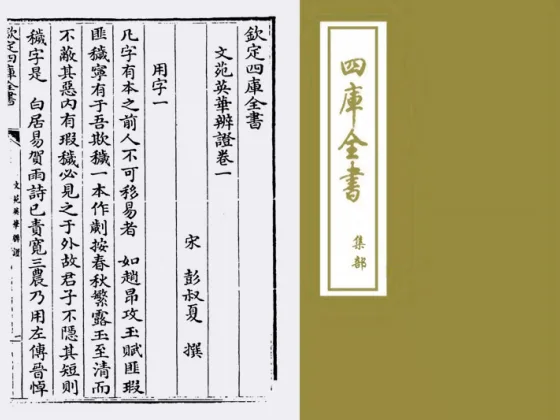 欽定四庫全書
文苑英華辨證卷一
宋 彭叔夏 撰
用字一
凡字有本之前人不可移易者 如趙昂攻玉賦匪瑕
匪穢寧有于吾欺穢一本作劌按春秋繁露玉至清而
不蔽其惡内有瑕穢必見之于外故君子不隱其短則
穢字是 白居易賀雨詩已責寛三農乃用左傳晉悼
欽定四庫全書
文苑英華辨證
四庫全書
集部